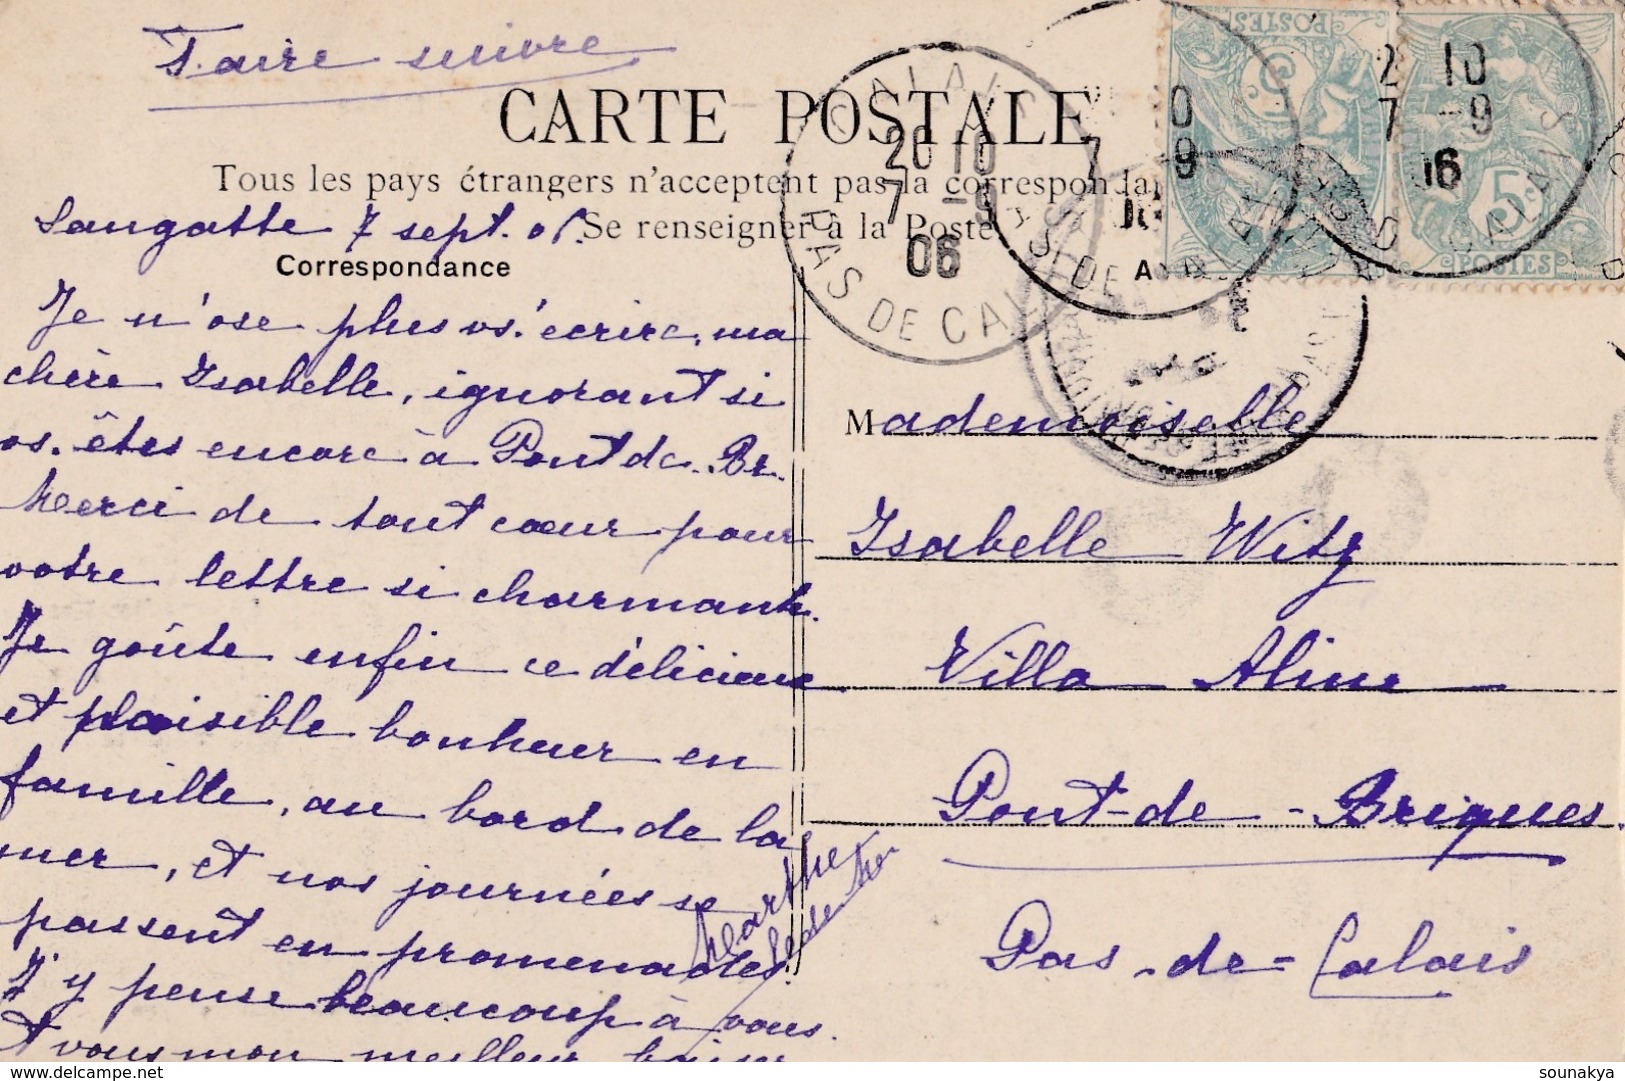 Faire suivre
CARTE POSTALE
Tous les pays étrangers n'acceptent pas la correspondan
Se renseigner à la Poste
Sangatte 7 sept. 06.
Correspondance
Je n'ose plus vs. écrire, ma
chère Isabelle, ignorant si
vs. êtes encore à Pont de Br.
Merci de tout cœur pour
votre lettre si charmante.
Je goûte enfin ce délicieux
et plaisible bonheur en
famille, au bord de la
mer, et nos journées se
passent en promenades.
J'y pense beaucoup à vous.
t vous mon meilleur baiser
Marthe
Mademoiselle
Isabelle Witz
Villa Aline
Pont-de-Briques
Pas-de-Calais
CALAIS
20 10
7 -9
06
PAS DE CALAIS
POSTES
5
POSTES
5
10
7 -9
06
sounakya